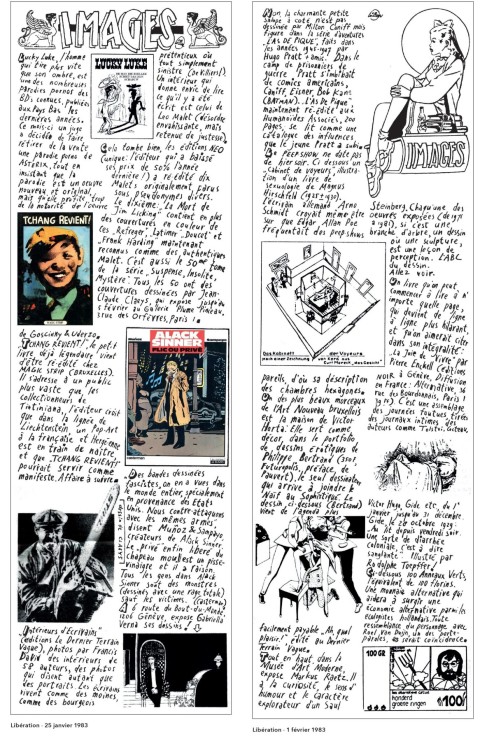 IMAGES
Lucky Luke, l'homme
qui tire plus vite
que son ombre, est
une des nombreuses
parodies pornos des
BD, connues, publiées
aux Pays Bas les
dernières années.
Ce mois-ci un juge
a décidé de faire
retirer de la vente
une parodie porno de
Astérix, tout en
insistant que la
parodie est un oeuvre
nouveau et original,
mais qu'elle profite trop
de la notoriété de l'oeuvre
LUCKY LUKE
TCHANG REVIENT!
de Goscinny & Uderzo.
"TCHANG REVIENT!", le petit
livre déjà légendaire vient
d'être ré-édité chez
MAGIC STRIP (BRUXELLES).
Il s'adresse à un public
plus vaste que les
collectionneurs de
Tintiniana, l'éditeur croit
que dans la lignée de
Lichtenstein, un Pop-Art
à la française et Hergéenne
est en train de naître
et que "TCHANG REVIENT!"
pourrait servir comme
manifeste. Affaire à suivre.
Intérieurs d'Ecrivains
(éditions Le Dernier Terrain
Vague), photos par Francis
David des intérieurs de
28 auteurs, des photos
qui disent autant que
des portraits. Les écrivains
vivent comme des moines,
comme des bourgeois
prétentieux ou
tout simplement
sinistre (Lockhart).
Un intérieur qui
donne envie de lire
ce qu'il y a été
écrit est celui de
Léo Malet (désordre
envahissante, mais
retenue de justesse).
Cela tombe bien, les éditions NEO
(unique: l'éditeur qui a baissé
ses prix de 50% l'année
dernière!) a ré-édité dix
Malets originalement parus
sous pseudonymes divers.
Le dixième, "La Mort de
Jim Licking" contient en plus
des couvertures en couleur de
ces "Refreger", "Latimer", "Doucet" et
"Frank Harding" maintenant
reconnus comme des authentiques
Malet. C'est aussi le 50ème tome
de la série "Suspense, Insolite,
Mystère". Tous les 50 ont des
couvertures dessinées par Jean-
Claude Claeys, qui expose jusqu'au
5 février au Galerie Plume Pinceau,
1 rue des Orfèvres, Paris 1.
ALACK
SINNER
FLIC OU PRIVÉ
Des bandes dessinées
fascistes, on en a vues dans
le monde entier, spécialement
en provenance des Etats
Unis. Nous contre-attaquons
avec les mêmes armes,
disent Muñoz & Sampayo
créateurs de Alack Sinner.
"Le privé enfin libéré du
chapeau mou" est un pisse-
vinaigre et il a raison.
Tous les gens dans Alack
Sinner sont des monstres
(dessinés avec une rage totale)
sauf les victimes. (Casterman)
A 6 route du bout-du-monde,
1206 Genève, expose Gabriella
Verna ses dessins!
Libération - 25 janvier 1983
Non la charmante petite
vampe à côté n'est pas
dessinée par Milton Caniff mais
figure dans la série d'aventures
"L'AS DE PIQUE", faits dans
les années 1945-1947 par
Hugo Pratt & amis. Dans le
camp de prisonniers de
guerre, Pratt s'imbibait
de comics americains,
Caniff, Eisner, Bob Kane
(BATMAN). "L'As De Pique"
maintenant ré-édité aux
Humanoïdes Associés, 200
pages, se lit comme un
catalogue des influences
que le jeune Pratt a subi.
Le PEEPSHOW ne date pas
de hier soir. Ci dessous un
"Cabinet de voyeurs", illustra-
tion d'un livre de
Sexuologie de Magnus
Hirschfeld (1927-1930).
L'écrivain allemand Arno
Schmidt croyait même être
sûr que Edgar Allan Poe
fréquentait des peepshows
IMAGES
Das Kabinett der Voyeurs
nach einer Zeichnung von Curt Moreck „Das Gesicht"
pareils, d'où sa déscription
des chambres hexagones.
Un des plus beaux morceaux
de l'Art Nouveau bruxellois
est la maison de Victor
Horta. Elle sert comme
décor, dans le portfolio
de dessins érotiques de
Philippe Bertrand (150f.
Futuropolis, préface de
Pauvert), le seul dessinateur,
qui arrive à joindre le
Naïf au Sophistiqué. Le
dessin ci-dessous (Bertrand)
vient de l'agenda plus
facilement payable "Ah, quel
plaisir!" édité au Dernier
Terrain Vague.
Tout en haut, dans le
Musée d'Art Moderne,
expose Markus Raetz. Il
a la curiosité, le sens d'
humour et le caractère
explorateur d'un Saul
Steinberg. Chaqu'une des
oeuvres exposées (de 1971
à 1981), si c'est une
branche d'arbre, un dessin
où une sculpture,
est une leçon de
perception. L'ABC
du dessin.
Allez voir.
Un livre qu'on peut
commencer à lire à n'
importe quelle page,
qui devient de ligne
à ligne plus hilarant,
et qu'on aimerait citer
dans son intégralité:
"La Joie de Vivre" par
Pierre Enckell (Editions
NOIR à Genève, Diffusion
en France: Alternative, 36
rue des Bourdonnais, Paris 1
). C'est une assemblage
des journées foutues tirées
des journaux intimes des
auteurs comme Tolstoï, Guiteau,
Victor Hugo, Gide etc, du 1er
janvier jusqu'au 31 décembre
"Gide, le 28 octobre 1929:
Au lit depuis vendredi soir.
Une sorte de diarrhée
coloniale, c'est à dire
sanglante." Illustré par
Rodolphe Toepffer!
Ci-dessous 100 Anneaux Verts,
l'équivalent de 100 florins.
Une monnaie alternative qui
aidera à surgir une
économie alternative parmi les
écologistes hollandais. Toute
ressemblance du personnage avec
Roel van Duijn, un des porte-
paroles, serait coincidence
honderd
groene ringen
100/
Libération - 1 février 1983